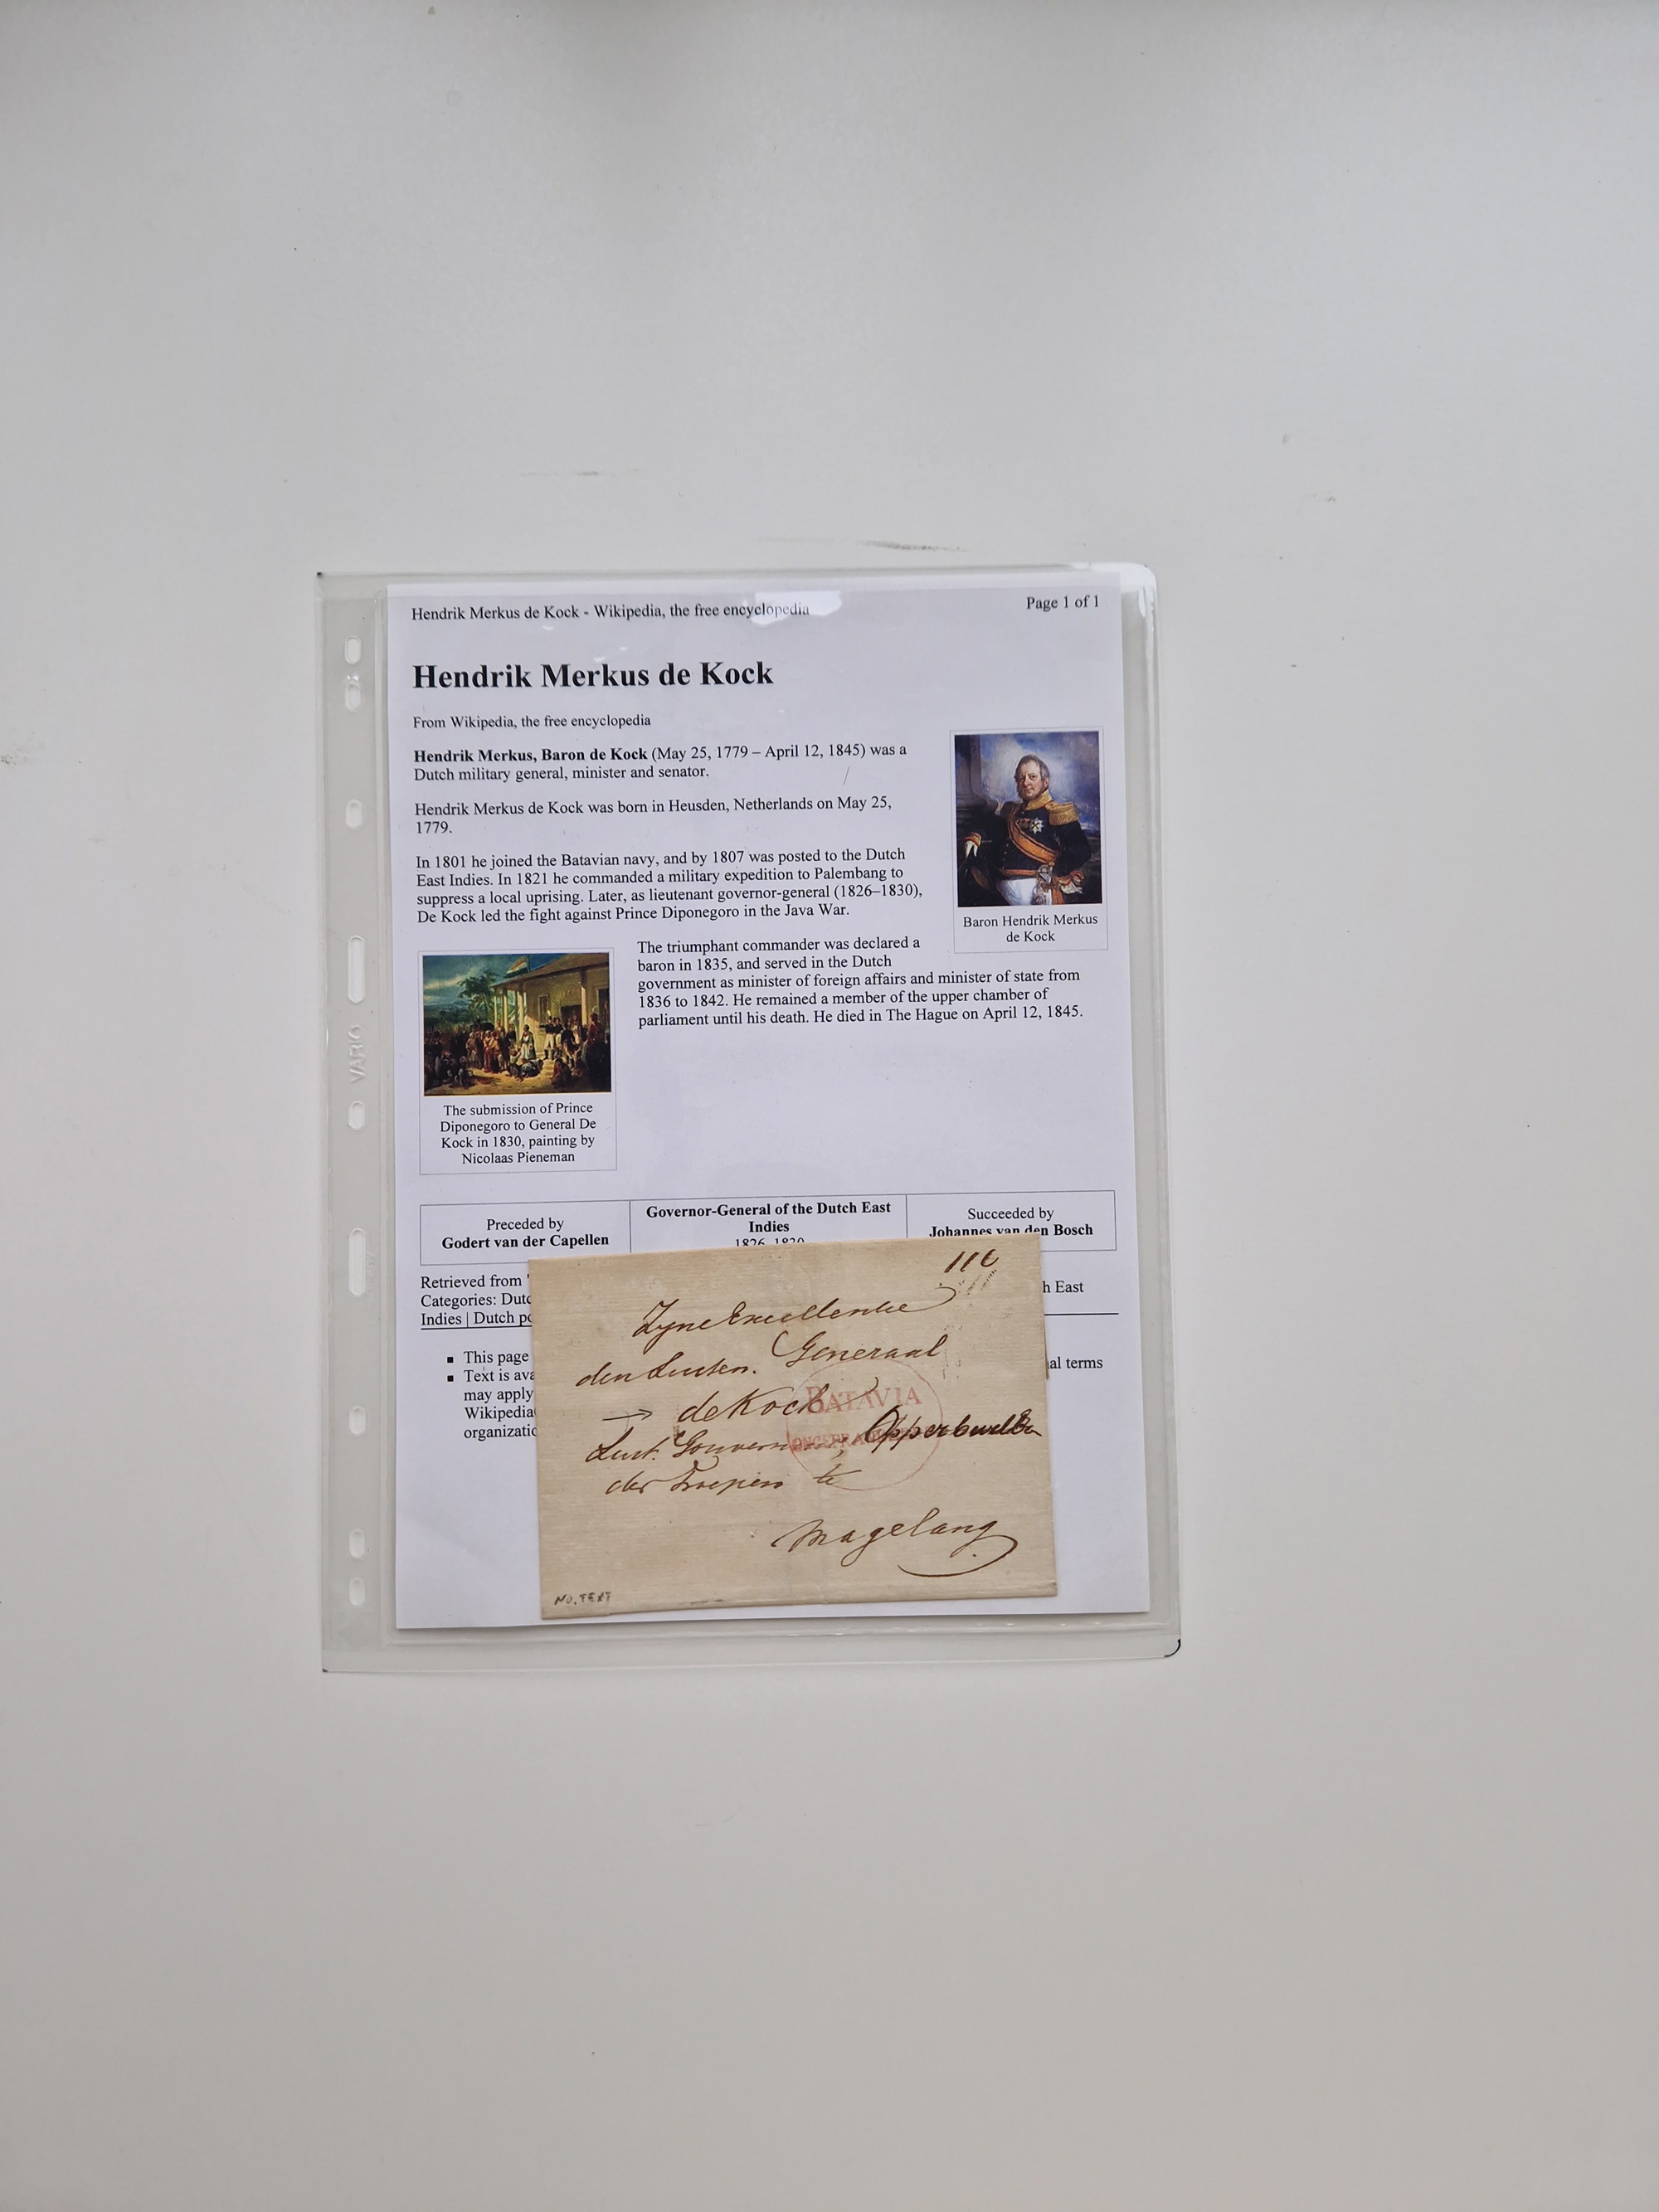 Hendrik Merkus de Kock - Wikipedia, the free encyclopedia
Page 1 of 1
Hendrik Merkus de Kock
From Wikipedia, the free encyclopedia
Hendrik Merkus, Baron de Kock (May 25, 1779 – April 12, 1845) was a
Dutch military general, minister and senator.
Hendrik Merkus de Kock was born in Heusden, Netherlands on May 25,
1779.
In 1801 he joined the Batavian navy, and by 1807 was posted to the Dutch
East Indies. In 1821 he commanded a military expedition to Palembang to
suppress a local uprising. Later, as lieutenant governor-general (1826–1830),
De Kock led the fight against Prince Diponegoro in the Java War.
Baron Hendrik Merkus
de Kock
The triumphant commander was declared a
baron in 1835, and served in the Dutch
government as minister of foreign affairs and minister of state from
1836 to 1842. He remained a member of the upper chamber of
parliament until his death. He died in The Hague on April 12, 1845.
The submission of Prince
Diponegoro to General De
Kock in 1830, painting by
Nicolaas Pieneman
Preceded by
Godert van der Capellen
Governor-General of the Dutch East
Indies
Succeeded by
Johannes van den Bosch
Retrieved from
h East
Categories: Dutc
Indies | Dutch po
This page
al terms
Text is ava
may apply
Wikipedia
organizatio
Zyne Excellentie
den Generaal
→ de Kock
Gouvern
der Troepen te
Magelang
BATAVIA
NO. TEXT
VARIO